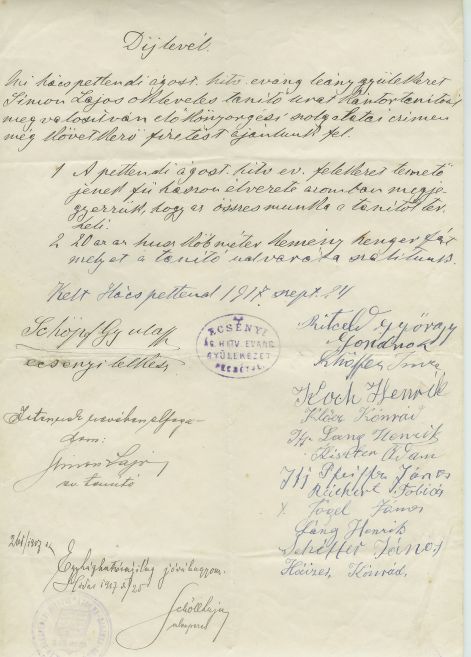 Díjlevél.
Mi hácspettendi ágost. hitv. evang leánygyülekezet
Simon Lajos okleveles tanító urat kántortanítónak
megválasztván előkönyörgési szolgálatai címen
még következő fizetést ajánlunk fel.
1 A pettendi ágost. hitv ev. felekezet temető
jének fű haszon élvezete
hogy az összes munka a tanítót ter
heli.
2 20 azaz husz köbméter kemény henger fát
melyet a tanító udvarára szállítunk.
Kelt Hácspettend 1917 szept. 24
Schöpf Gyula
ecsenyi lelkész
ECSÉNYI
ÁG. HITV. EVANG.
GYÜLEKEZET
PECSÉTJE
György
Gondnok
Schäffer Imre
Koch Henrik
Kléz Konrád
Ifj Lang Henrik
Kiszter Ádám
Ifj Pfeiffer János
Reichert Tobiás
Fogel János
Láng Henrik
Schäffer János
Konrád.
elfoga-
dom:
Simon Lajos
ev. tanító
Egyházhatóságilag jóváhagyom.
1917